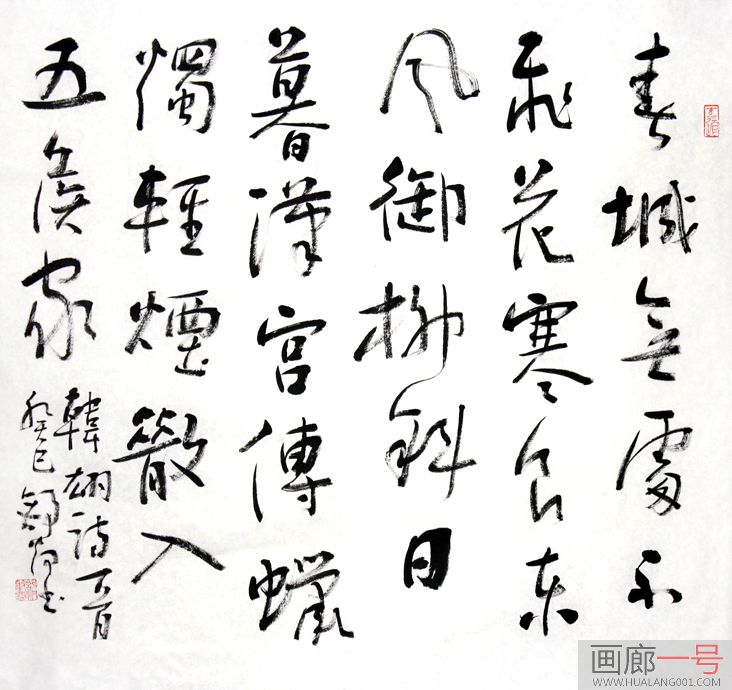 春城無處不
飛花寒食東
風御柳斜日
暮漢宮傳蠟
燭輕煙散入
五侯家
韓翃詩一首
癸巳
書
画廊一号
WWW.HUALANG001.COM